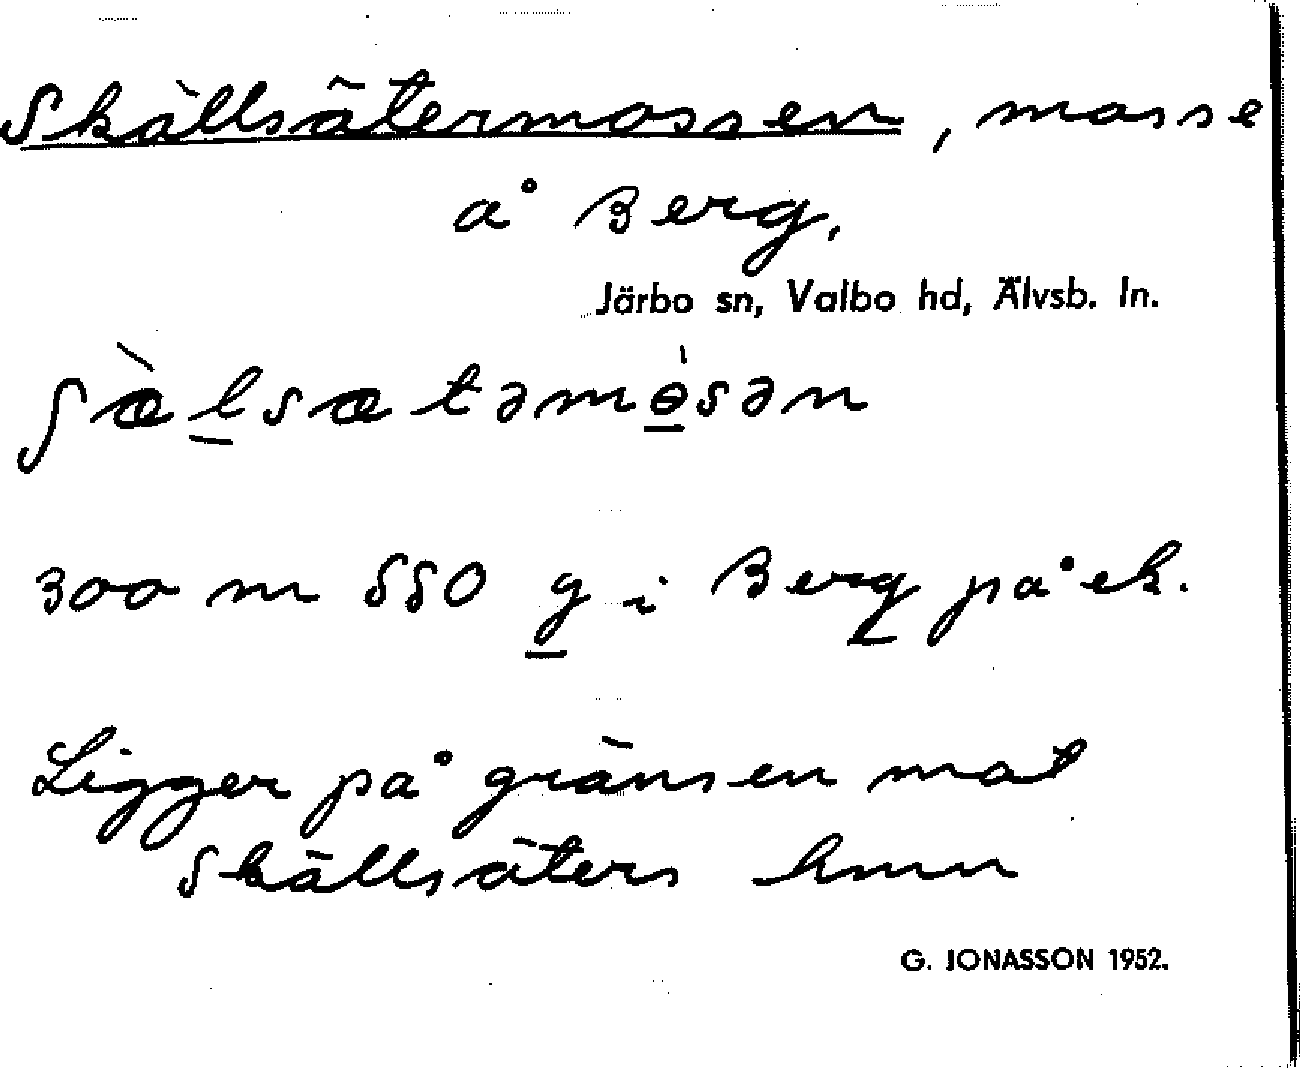 Skällsätermossen, mosse
å Berg,
Järbo sn, Valbo hd, Älvsb. ln.
ʃæ̀l̠sætəmɵ̠̀sən
300 m SSO g i Berg på ek.
Ligger på gränsen mot
Skällsäters hmn
G. JONASSON 1952.